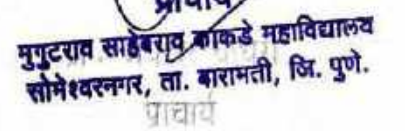 प्राचार्य
मुगुटराव साहेबराव काकडे महाविद्यालय
सोमेश्वरनगर, ता. बारामती, जि. पुणे.
प्राचार्य